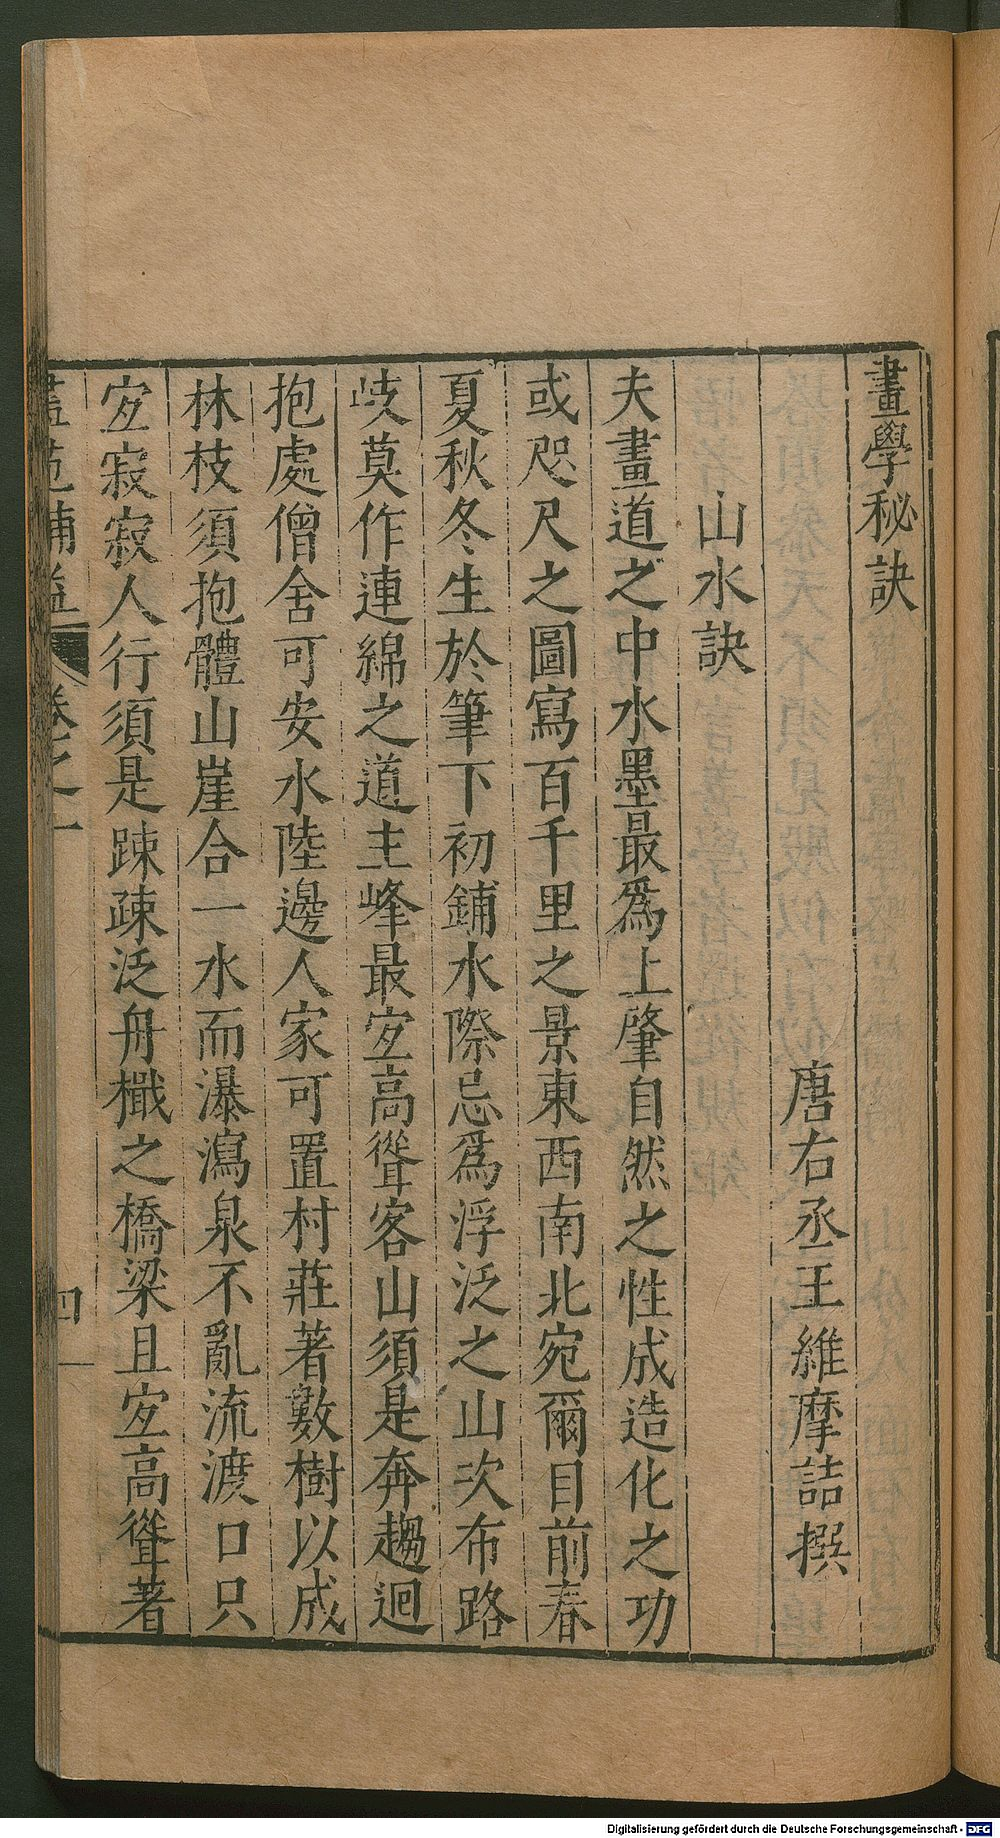 畫學秘訣
唐右丞王維摩詰撰
山水訣
夫畫道之中水墨最爲上肇自然之性成造化之功
或咫尺之圖寫百千里之景東西南北宛爾目前春
夏秋冬生於筆下初鋪水際忌爲浮泛之山次布路
岐莫作連綿之道主峰最宐高聳客山須是奔趨迴
抱處僧舍可安水陸邊人家可置村莊著數樹以成
林枝須抱體山崖合一水而瀑瀉泉不亂流渡口只
宐寂寂人行須是踈疎泛舟檝之橋梁且宐高聳著
畫苑補益 卷之一 四
Digitalisierung gefördert durch die Deutsche Forschungsgemeinschaft - DFG